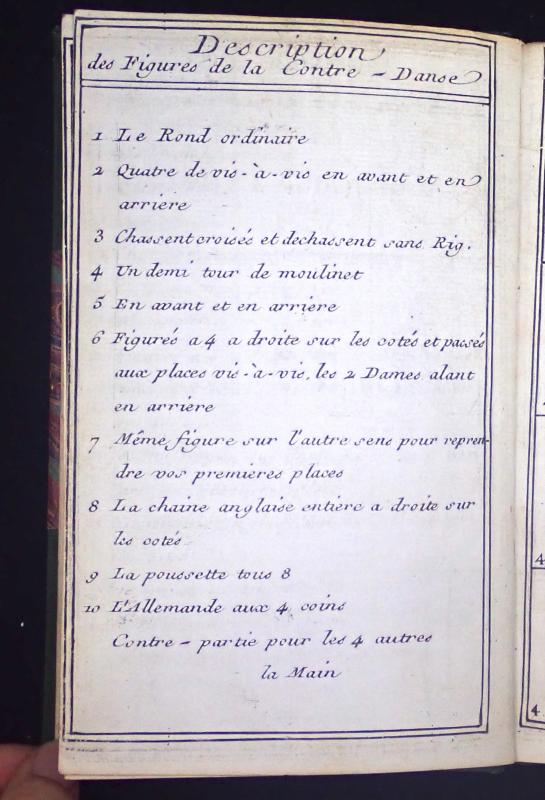 Description
des Figures de la Contre - Danse
1 Le Rond ordinaire
2 Quatre de vis-à-vis en avant et en
arriere
3 Chassent croisés et dechassent sans Rig.
4 Un demi tour de moulinet
5 En avant et en arriere
6 Figurés a 4 a droite sur les cotés et passés
aux places vis-à-vis, les 2 Dames alant
en arriere
7 Même figure sur l'autre sens pour repren-
dre vos premieres places
8 La chaine anglaise entiere a droite sur
les cotés
9 La poussette tous 8
10 L'Allemande aux 4 coins
Contre - partie pour les 4 autres
la Main
4
4